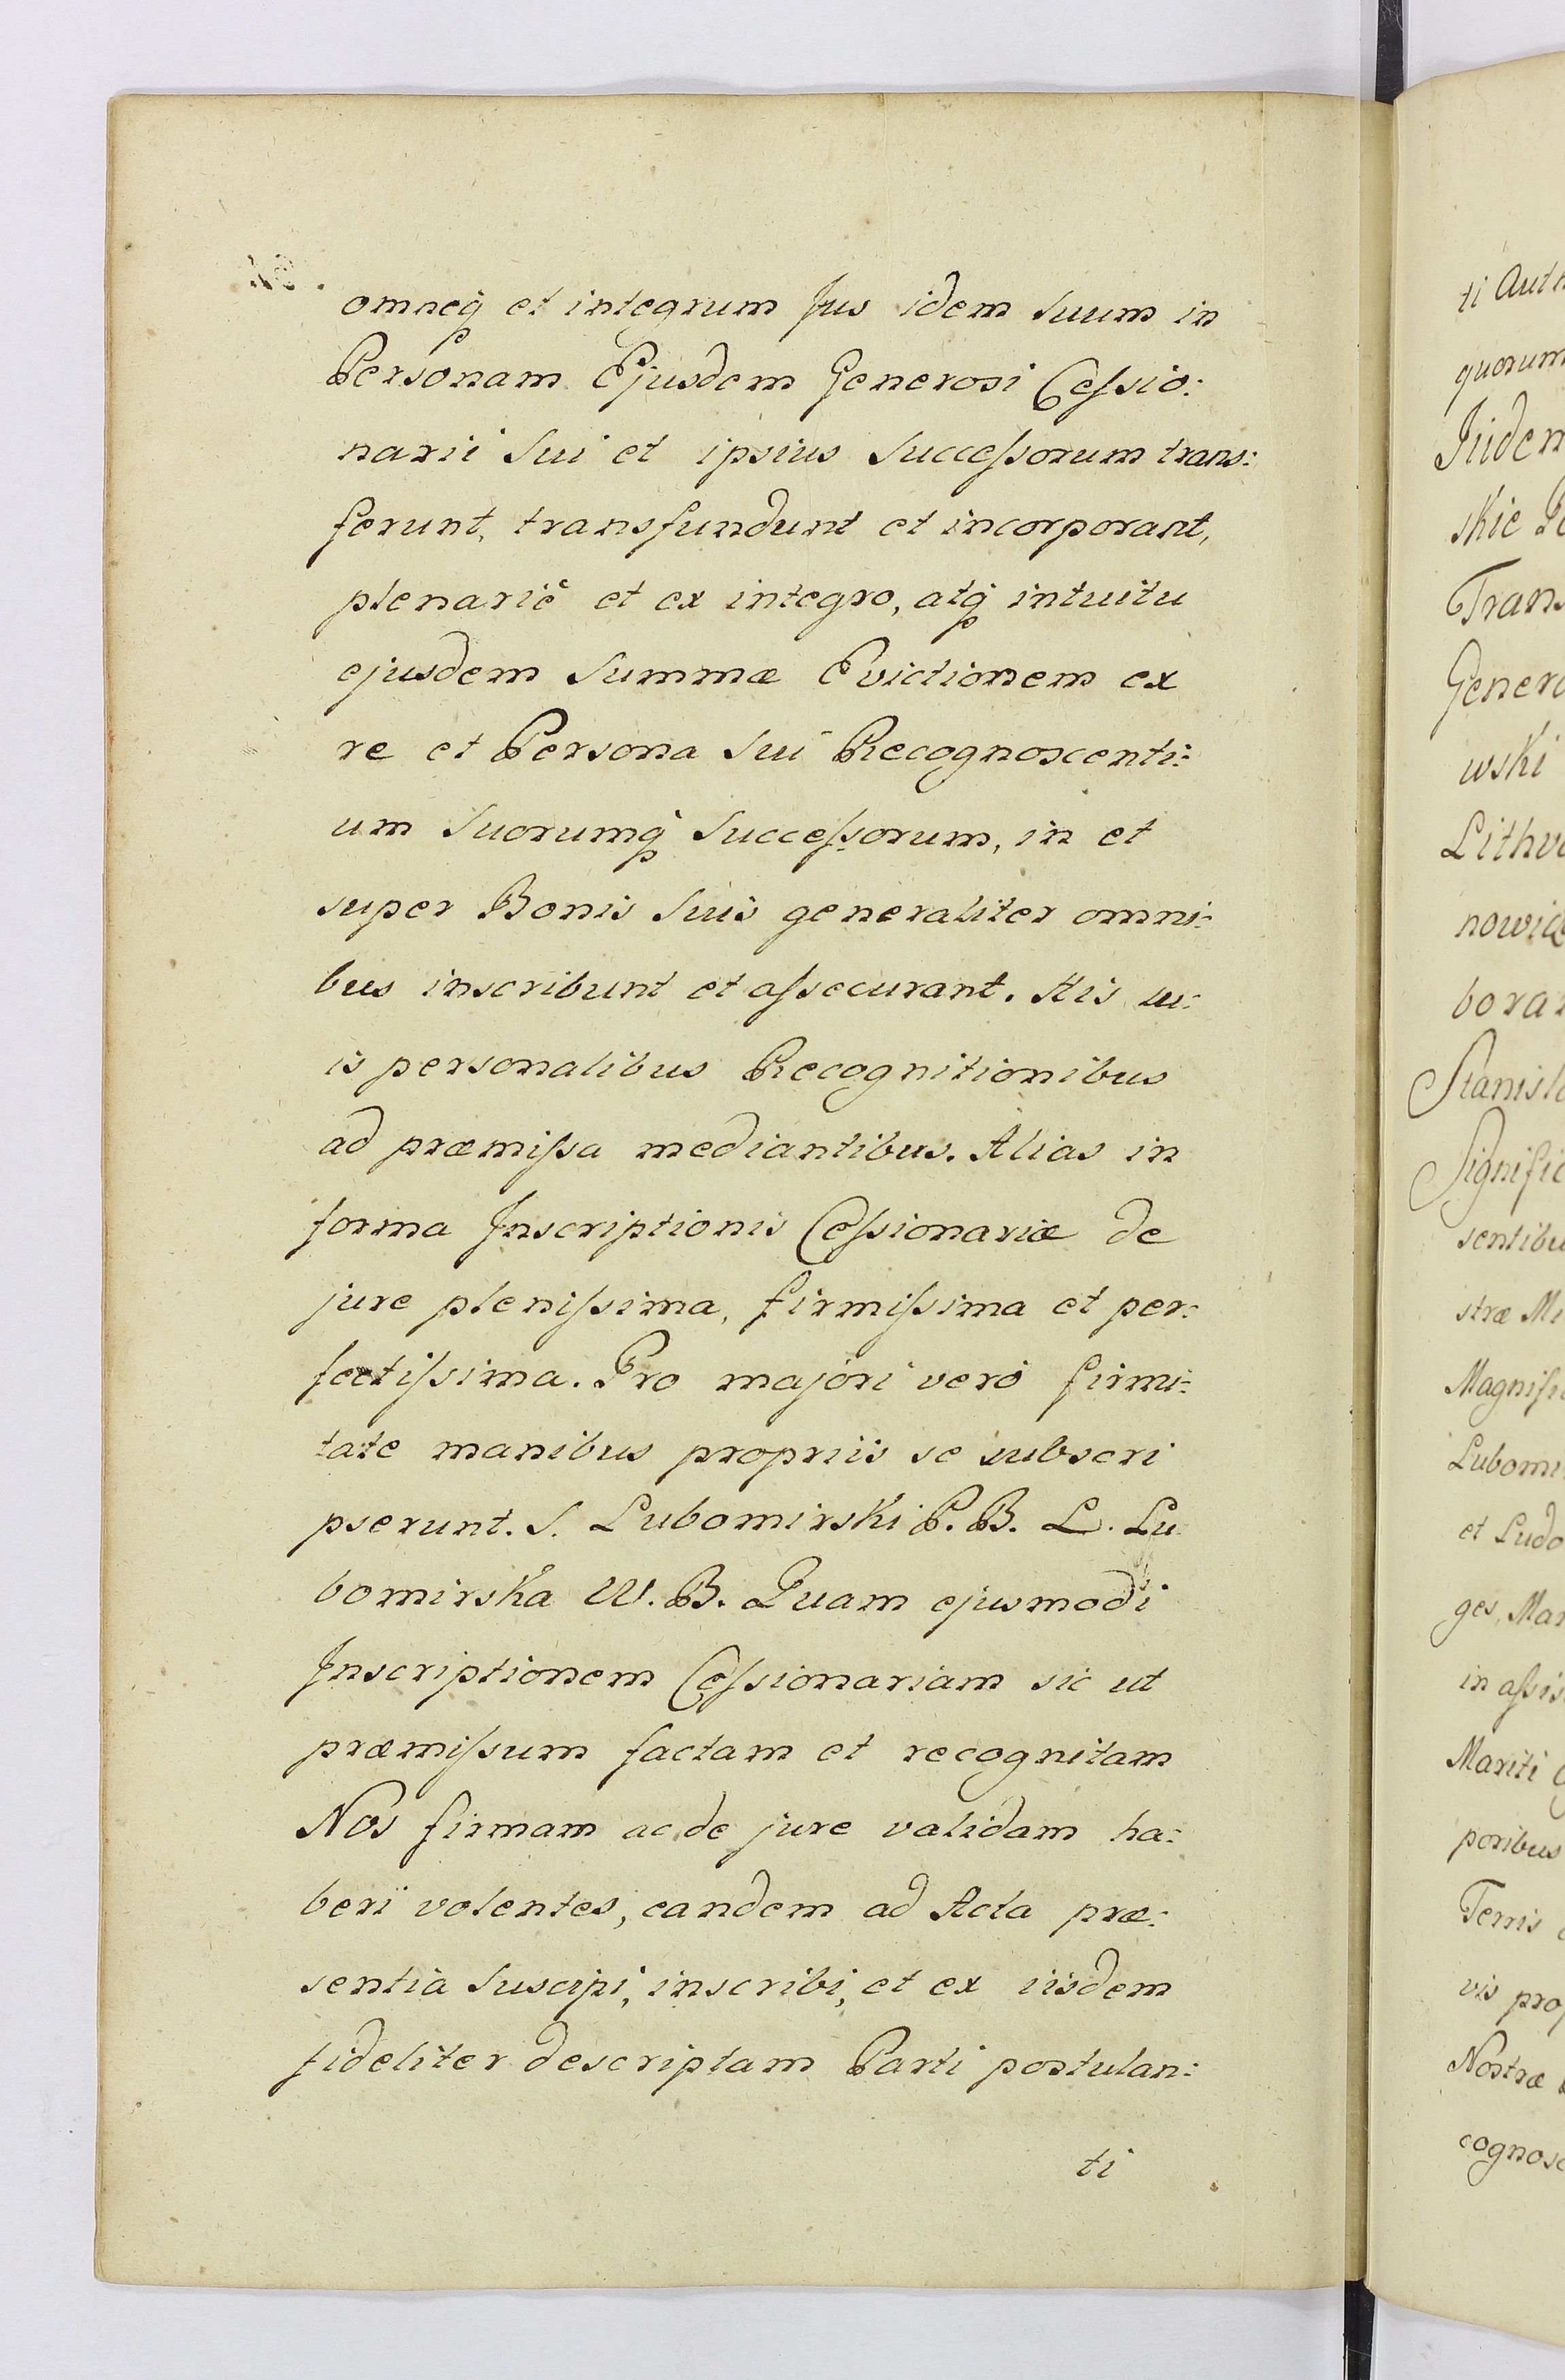 omneq̃ et integrum Jus idem Suum in
Personam Ejusdem Generosi Ceſsio:
narii Sui et ipsius Succeſsorum trans:
ferunt, transfundunt et incorporant,
plenariè et ex integro, atq̃ intuitu
ejusdem Summæ Evictionem ex
re et Persona Sui Recognoscenti:
um Suorumq̃ Succeſsorum, in et
super Bonis Suis generaliter omni:
bus inscribunt et aſsecurant. His su:
is personalibus Recognitionibus
ad præmiſsa mediantibus. Alias in
forma Inscriptionis Ceſsionariæ de
jure pleniſsima, firmiſsima et per:
fectiſsima. Pro majori verò firmi:
tate manibus propriis se subscri
pserunt. S. Lubomirski P. B. L. Lu
bomirska W. B. Quam ejusmodi
Inscriptionem Ceſsionariam sic ut
præmiſsum factam et recognitam
Nos firmam ac de jure validam ha:
beri volentes, eandem ad Acta præ:
sentia Suscipi, inscribi, et ex iisdem
fideliter descriptam Parti postulan:
ti
ti Auth
quorum
Iidem
skie
Trans
Genero
wski
Lithva
nowic
bora
Stanisla
Signific
sentibu
stræ
Magnifi
Lubomi
et Ludo
ges, Mar
in aſsis
Mariti
poribus
Terris
vis prop
Nostræ
cognosc